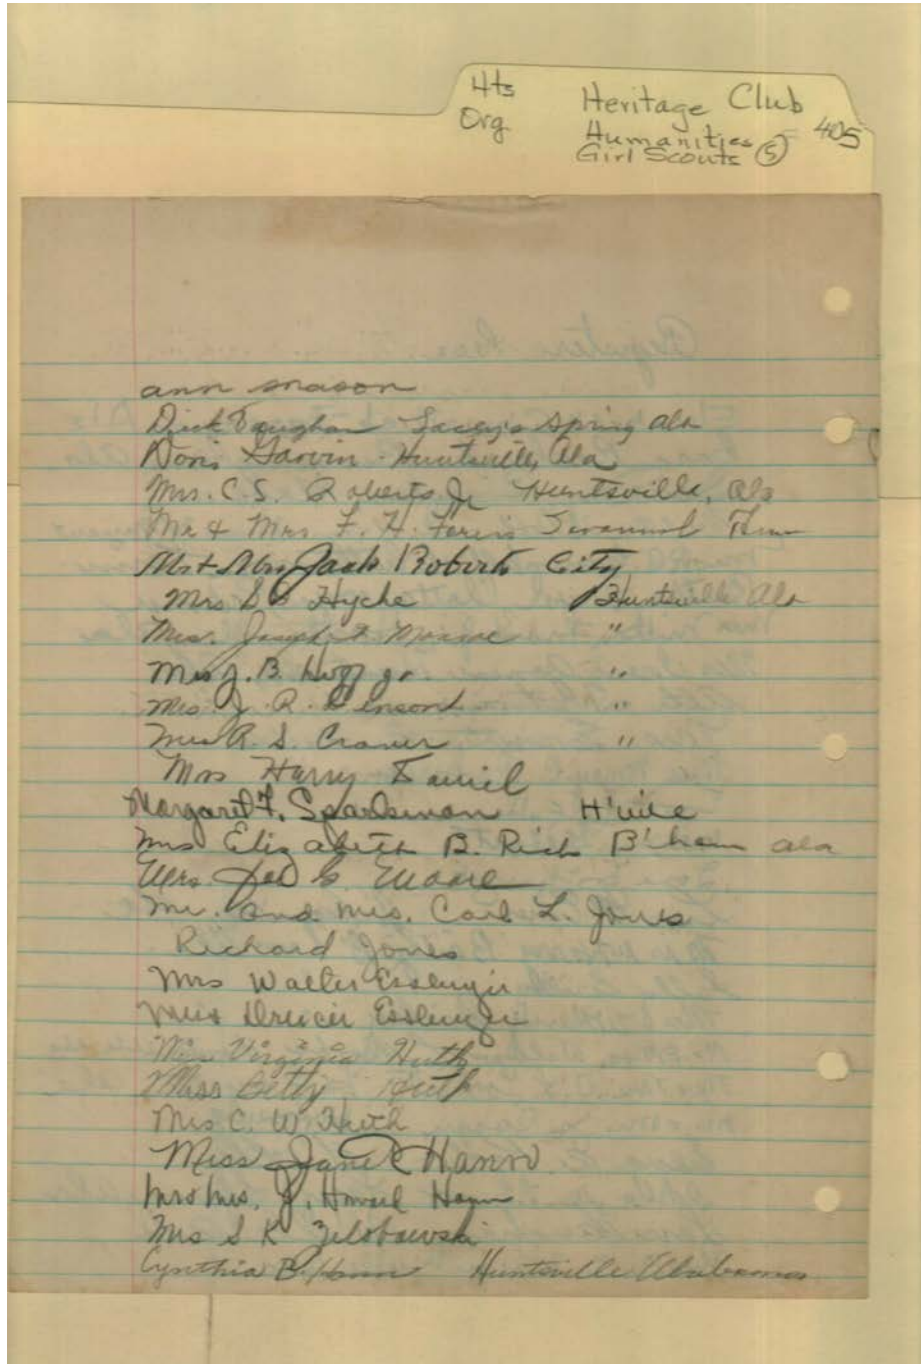 Hts Heritage Club
Org Humanities = 405
Girl Scouts (5)
ann mason
Dick Vaughan Lacey's Spring Ala
Doris Garvin - Huntsville, Ala
Mrs. C. S. Roberts Jr Huntsville, Ala
Mr & Mrs. F. H. Faris
Mr + Mrs Jack Roberts City
Mrs Hyche Huntsville Ala
Mrs. Joseph "
Mrs J. B. Huff Jr "
Mrs. J. R. "
Mrs R. S. Craner "
Mrs Harry Daniel
Margaret F. Sparkman H'ville
Mrs Elizabeth B. Rich B'ham ala
Mrs. Moore
Mr. and Mrs. Carl L. Jones
Richard Jones
Mrs Walter Esslinger
Esslinger
Miss Virginia Huth
Miss Betty Huth
Mrs C. W. Huth
Miss Jane Hanno
J. Howard
Mrs S K
Cynthia B. Huntsville Alabama